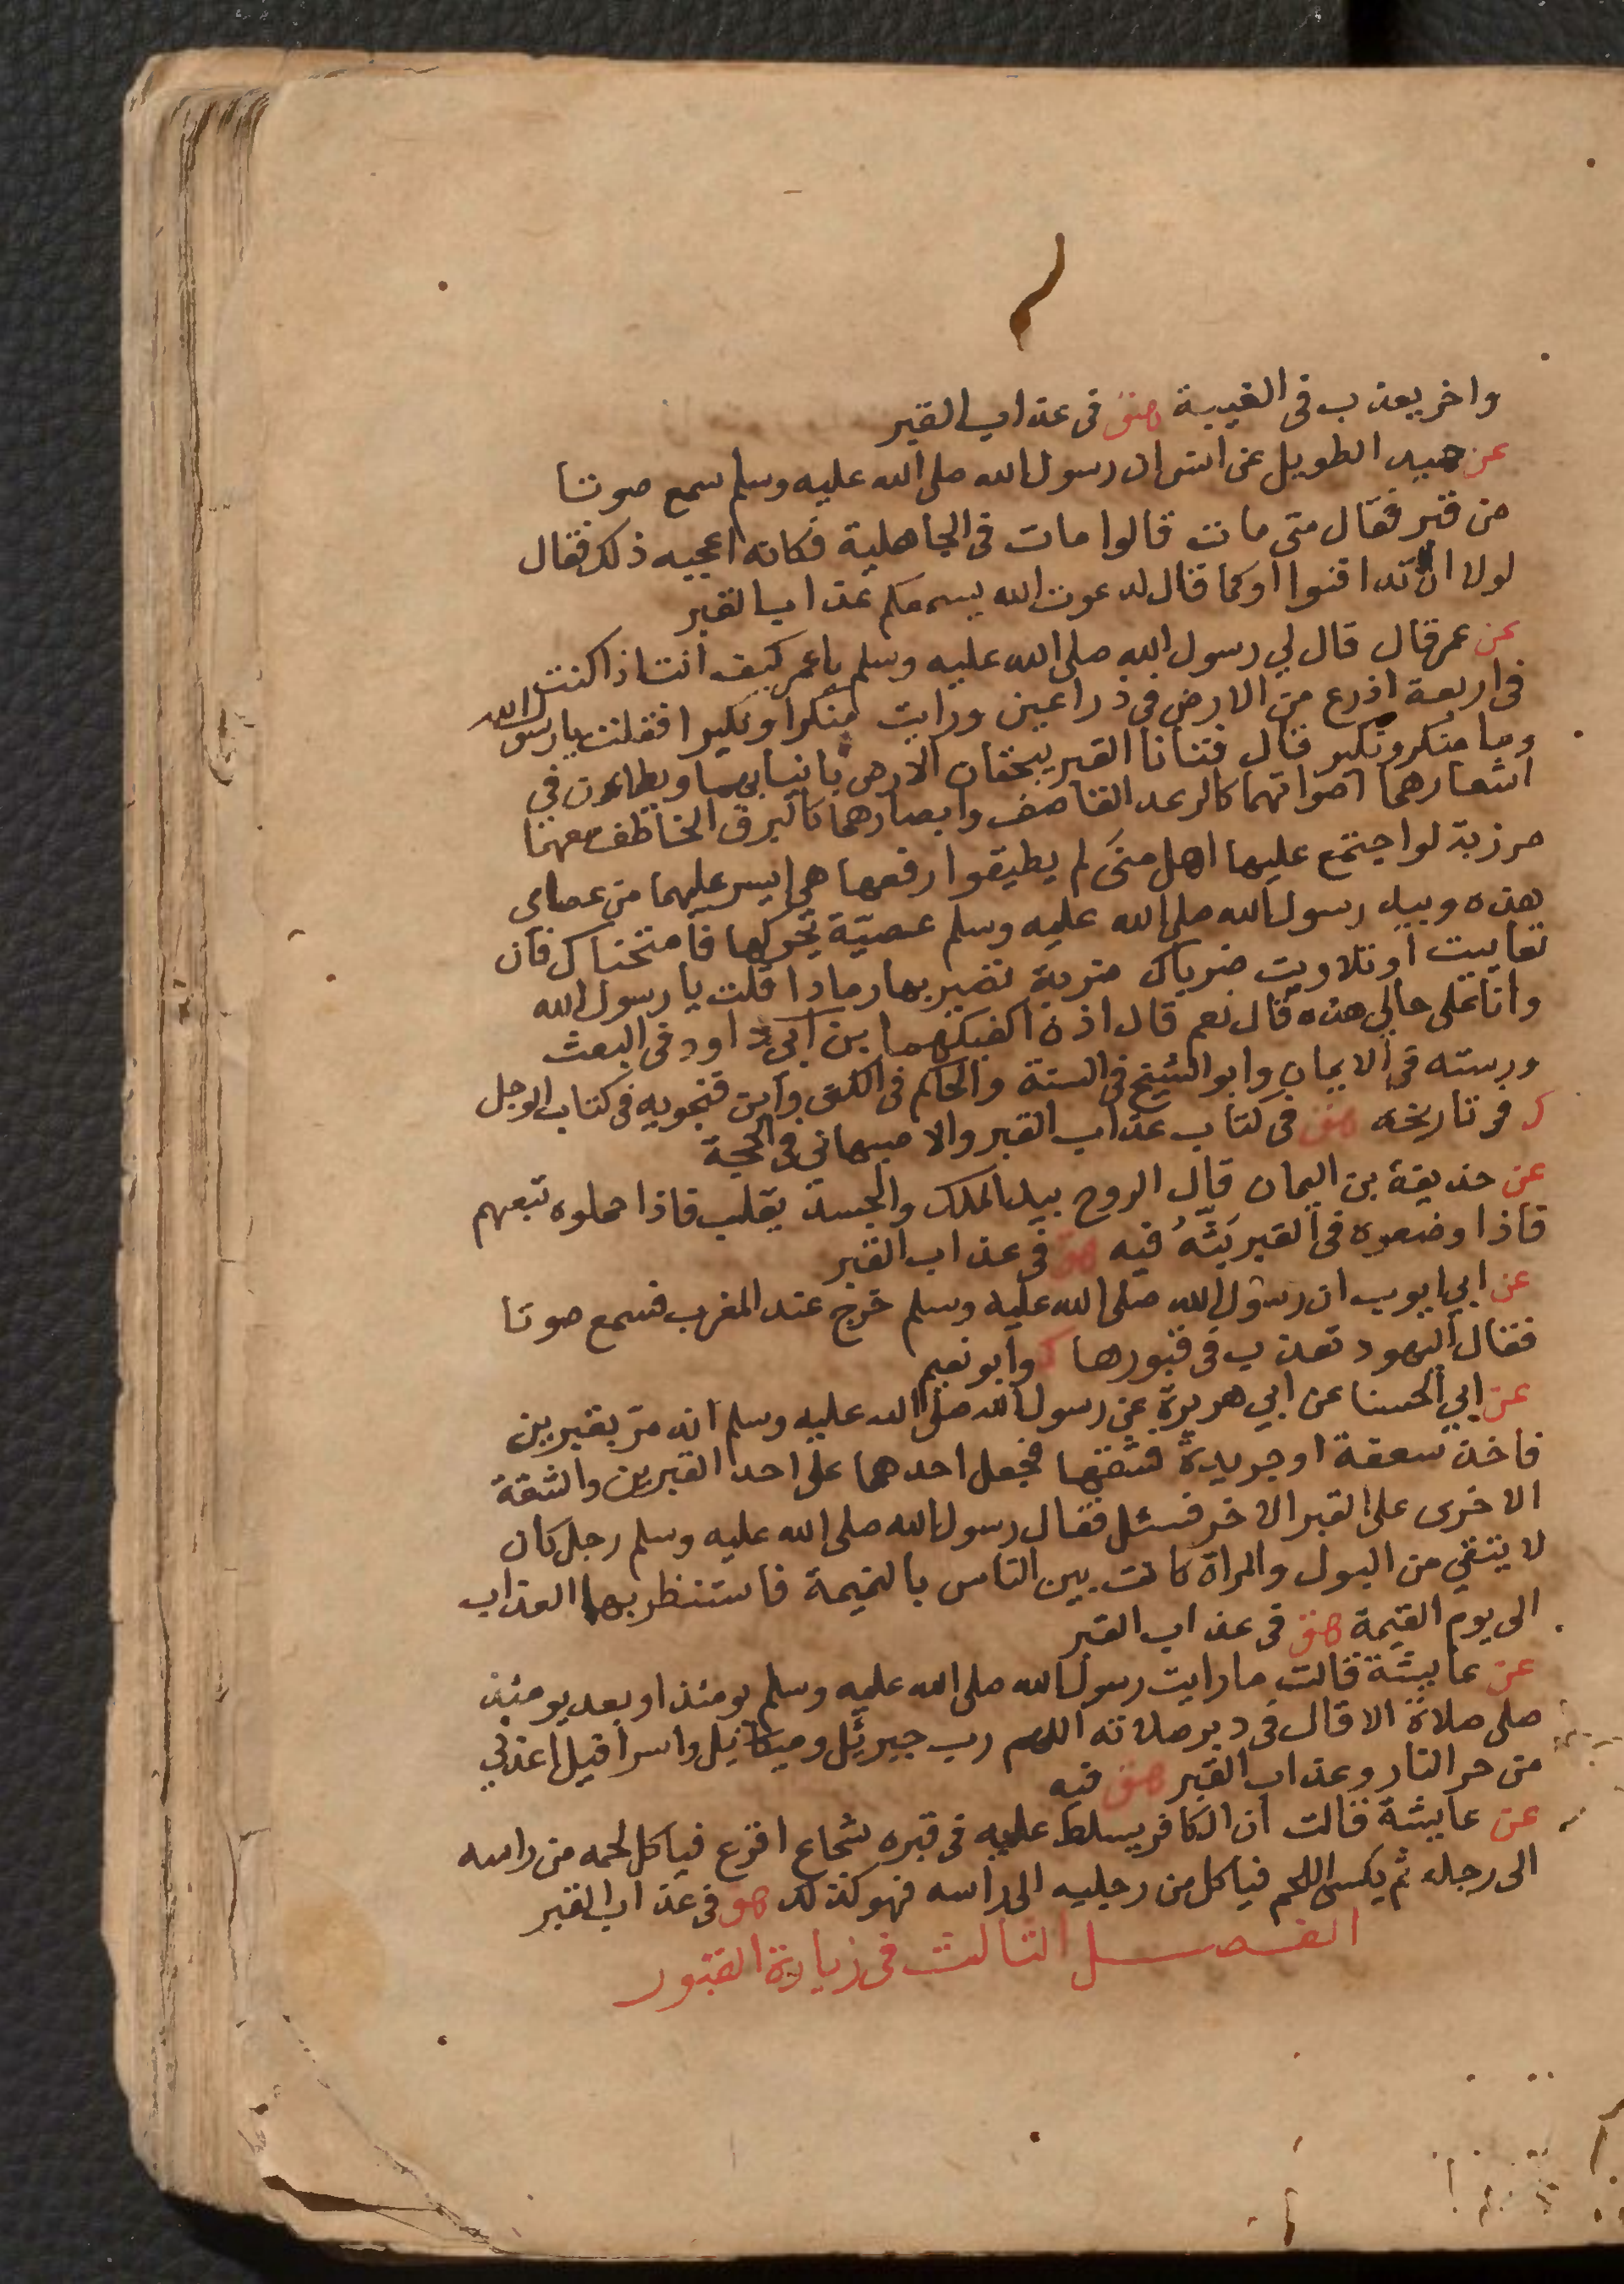 واخر يعذب فى الغيبة هق فى عذاب القبر
عن حميد الطويل عن انس ان رسول الله صلى الله عليه وسلم سمع صوتا
من قبر فقال متى مات قالوا مات فى الجاهلية فكانه اعجبه ذلك فقال
لولا ان لا تدافنوا او كما قال لدعوت الله يسمعكم عذاب القبر
عن عمر قال قال لي رسول الله صلى الله عليه وسلم يا عمر كيف انت اذا كنت
فى اربعة اذرع من الارض فى ذراعين ورايت منكرا ونكيرا فقلت يا رسول الله
وما منكر ونكير قال فتانا القبر يبحثان الارض بانيابهما ويطاءن فى
اشعارهما اصواتهما كالرعد القاصف وابصارهما كالبرق الخاطف معهما
مرزبة لو اجتمع عليها اهل منى لم يطيقوا رفعها هي ايسر عليهما من عصاى
هذه وبيد رسول الله صلى الله عليه وسلم عصيّة يحركها فامتحناك فان
تعاييت او تلاويت ضرباك ضربة تصير بها رمادا قلت يا رسول الله
وانا على حالي هذه قال نعم قال اذن اكفيكهما بن ابي داود فى البعث
ورسته فى الايمان وابو الشيخ فى السنة والحاكم فى الكنى وابن فنجويه فى كتاب الوجل
ك فى تاريخه هق فى كتاب عذاب القبر والاصبهاني فى الحجة
عن حذيفة بن اليمان قال الروح بيد الملك والجسد يقلب فاذا حملوه تبعهم
فاذا وضعوه فى القبر بَثَّهُ فيه هق فى عذاب القبر
عن ابي ايوب ان رسول الله صلى الله عليه وسلم خرج عند المغرب فسمع صوتا
فقال اليهود تعذب فى قبورها ك وابو نعيم
عن ابي الحسنا عن ابي هريرة عن رسول الله صلى الله عليه وسلم انه مرّ بقبرين
فاخذ سعفة او جريدة فشقها فجعل احدهما على احد القبرين والشقة
الاخرى على القبر الاخر فسئل فقال رسول الله صلى الله عليه وسلم رجل كان
لا يتقي من البول والمراة كانت بين الناس بالنميمة فاستنظر بهما العذاب
الى يوم القيمة هق فى عذاب القبر
عن عايشة قالت ما رايت رسول الله صلى الله عليه وسلم يومئذ او بعد يومئذ
صلى صلاة الا قال فى دبر صلاته اللهم رب جبرئيل وميكائيل واسرافيل اعذني
من حر النار وعذاب القبر هق فيه
عن عايشة قالت ان الكافر يسلط عليه فى قبره شجاع اقرع فياكل لحمه من راسه
الى رجله ثم يكسى اللحم فياكل من رجليه الى راسه فهو كذلك هق فى عذاب القبر
الفصل الثالث فى زيارة القبور